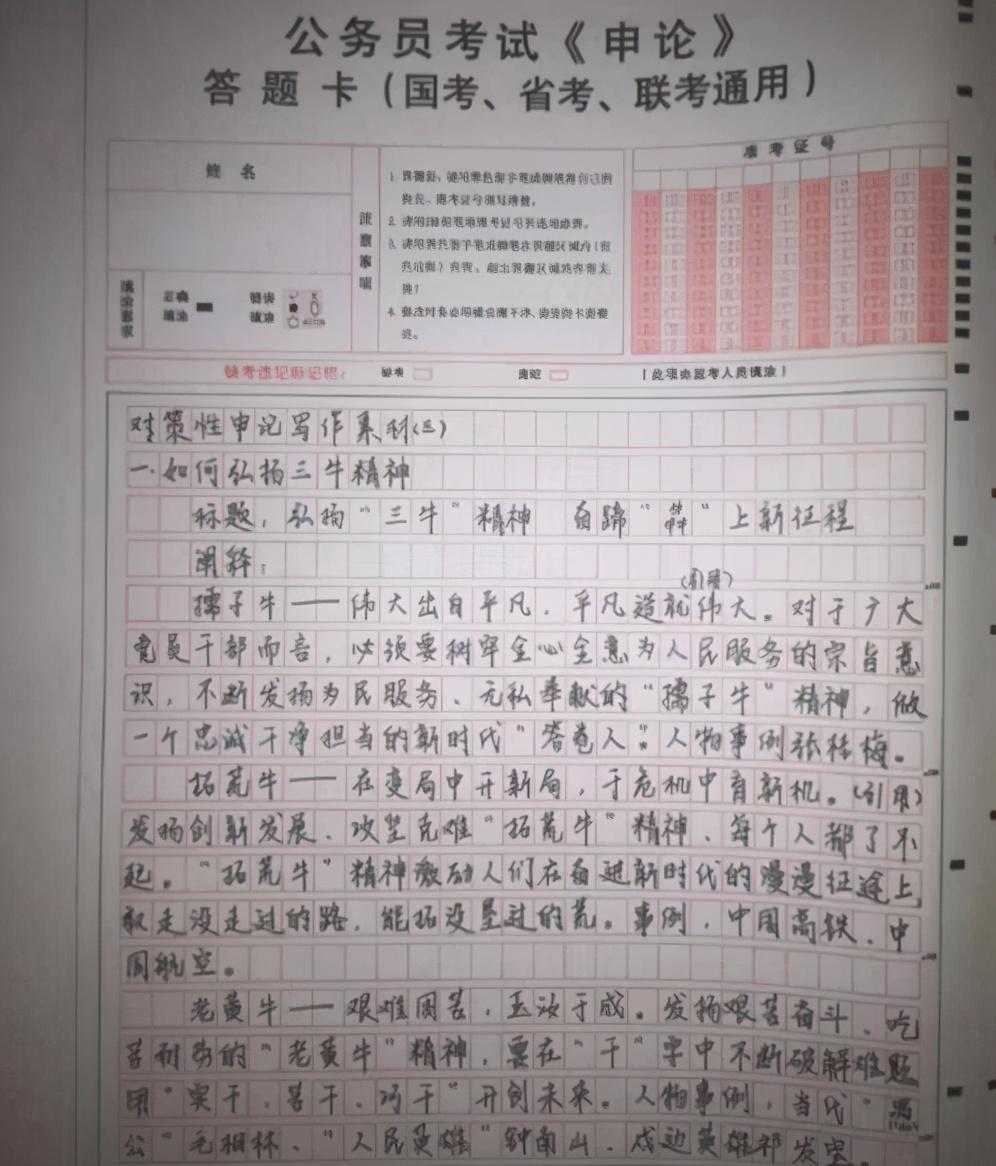 公务员考试《申论》
答题卡(国考、省考、联考通用)
姓 名
准考证号
注意事项
填涂要求
正确填涂
错误填涂
缺考
对策性申论写作素材(三)
一.如何弘扬三牛精神
标题:弘扬“三牛”精神 奋蹄“犇”上新征程
阐释:
(引用)
孺子牛——伟大出自平凡,平凡造就伟大。对于广大
党员干部而言,必须要树牢全心全意为人民服务的宗旨意
识,不断发扬为民服务、无私奉献的“孺子牛”精神,做
一个忠诚干净担当的新时代“答卷人”。人物事例张桂梅。
拓荒牛——在变局中开新局,于危机中育新机。(引用)
发扬创新发展、攻坚克难“拓荒牛”精神、每个人都了不
起。“拓荒牛”精神激励人们在奋进新时代的漫漫征途上,
敢走没走过的路,能拓没垦过的荒。事例,中国高铁、中
国航空。
老黄牛——艰难困苦,玉汝于成。发扬艰苦奋斗、吃
苦耐劳的“老黄牛”精神,要在“干”字中不断破解难题
用“实干、苦干、巧干”开创未来。人物事例,当代“愚
公”毛相林、“人民英雄”钟南山、戍边英雄祁发宝。